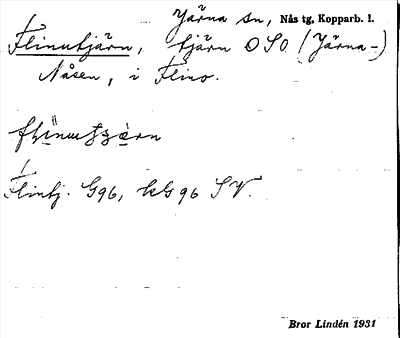 Järna sn, Nås tg, Kopparb. l.
Flinutjärn, tjärn OSO (Järna-)
Nåsen, i Flino.
Flintj. G96, kG96 SV.
Bror Lindén 1931